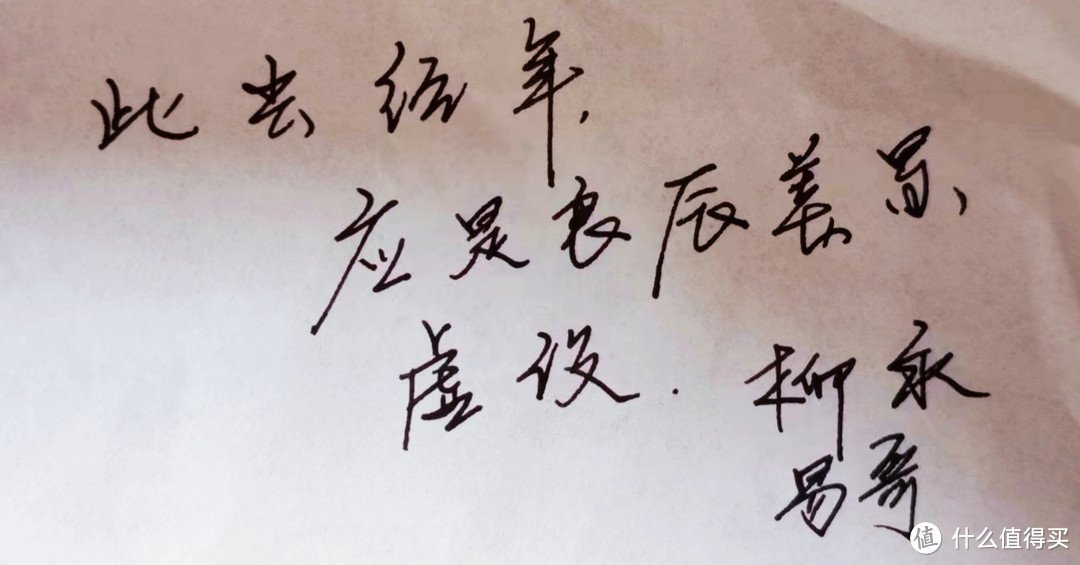 此去经年,
应是良辰美景
虚设. 柳永
易哥
值 什么值得买